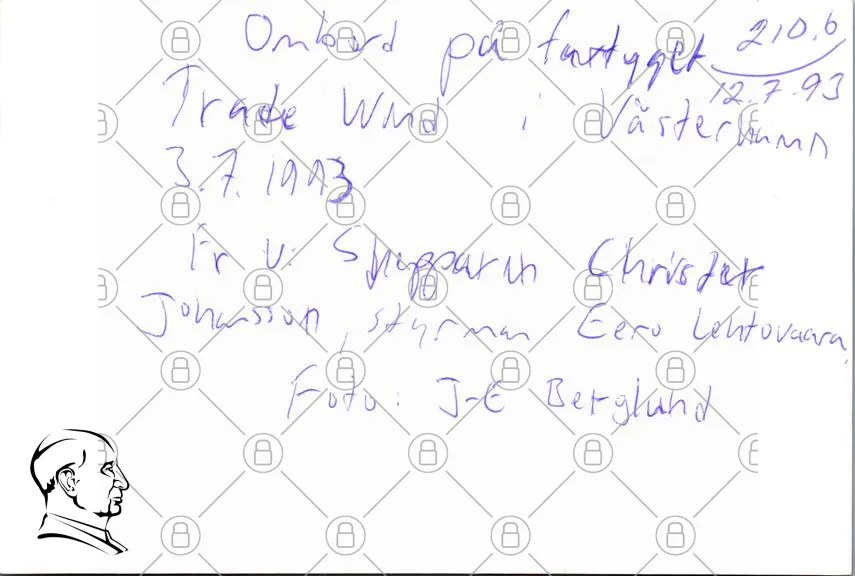 Ombord på fartyget 210.6
Trade Wind i Västerhamn 12.7.93
3.7.1993
Fr v: Skepparen Christer
Johansson, styrman Eero Lehtovaara.
Foto: J-E Berglund